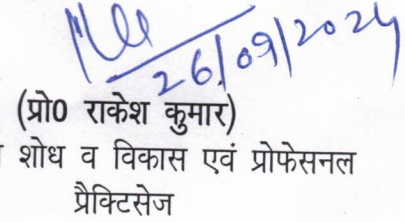 26/09/2024
(प्रो0 राकेश कुमार)
शोध व विकास एवं प्रोफेसनल
प्रैक्टिसेज